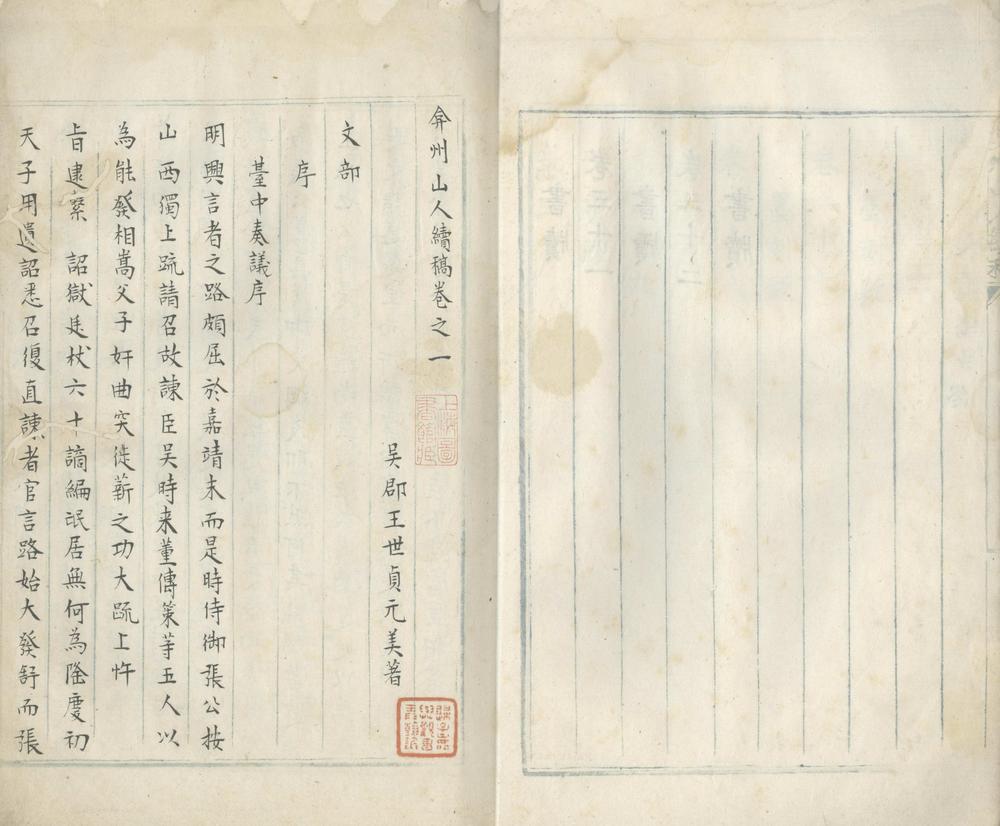 弇州山人續稿卷之一
吳郡王世貞元美著
文部
序
臺中奏議序
明興言者之路頗屈於嘉靖末而是時侍御張公按
山西獨上疏請召故諫臣吳時来董傳策等五人以
為能發相嵩父子奸曲突徙薪之功大疏上忤
旨逮繫 詔獄廷杖六十謫編氓居無何為隆慶初
天子用遺詔悉召復直諫者官言路始大發舒而張
上海圖書館藏